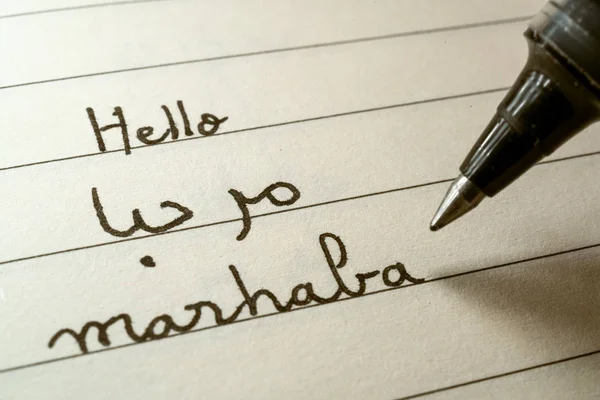 Hello
مرحبا
marhaba